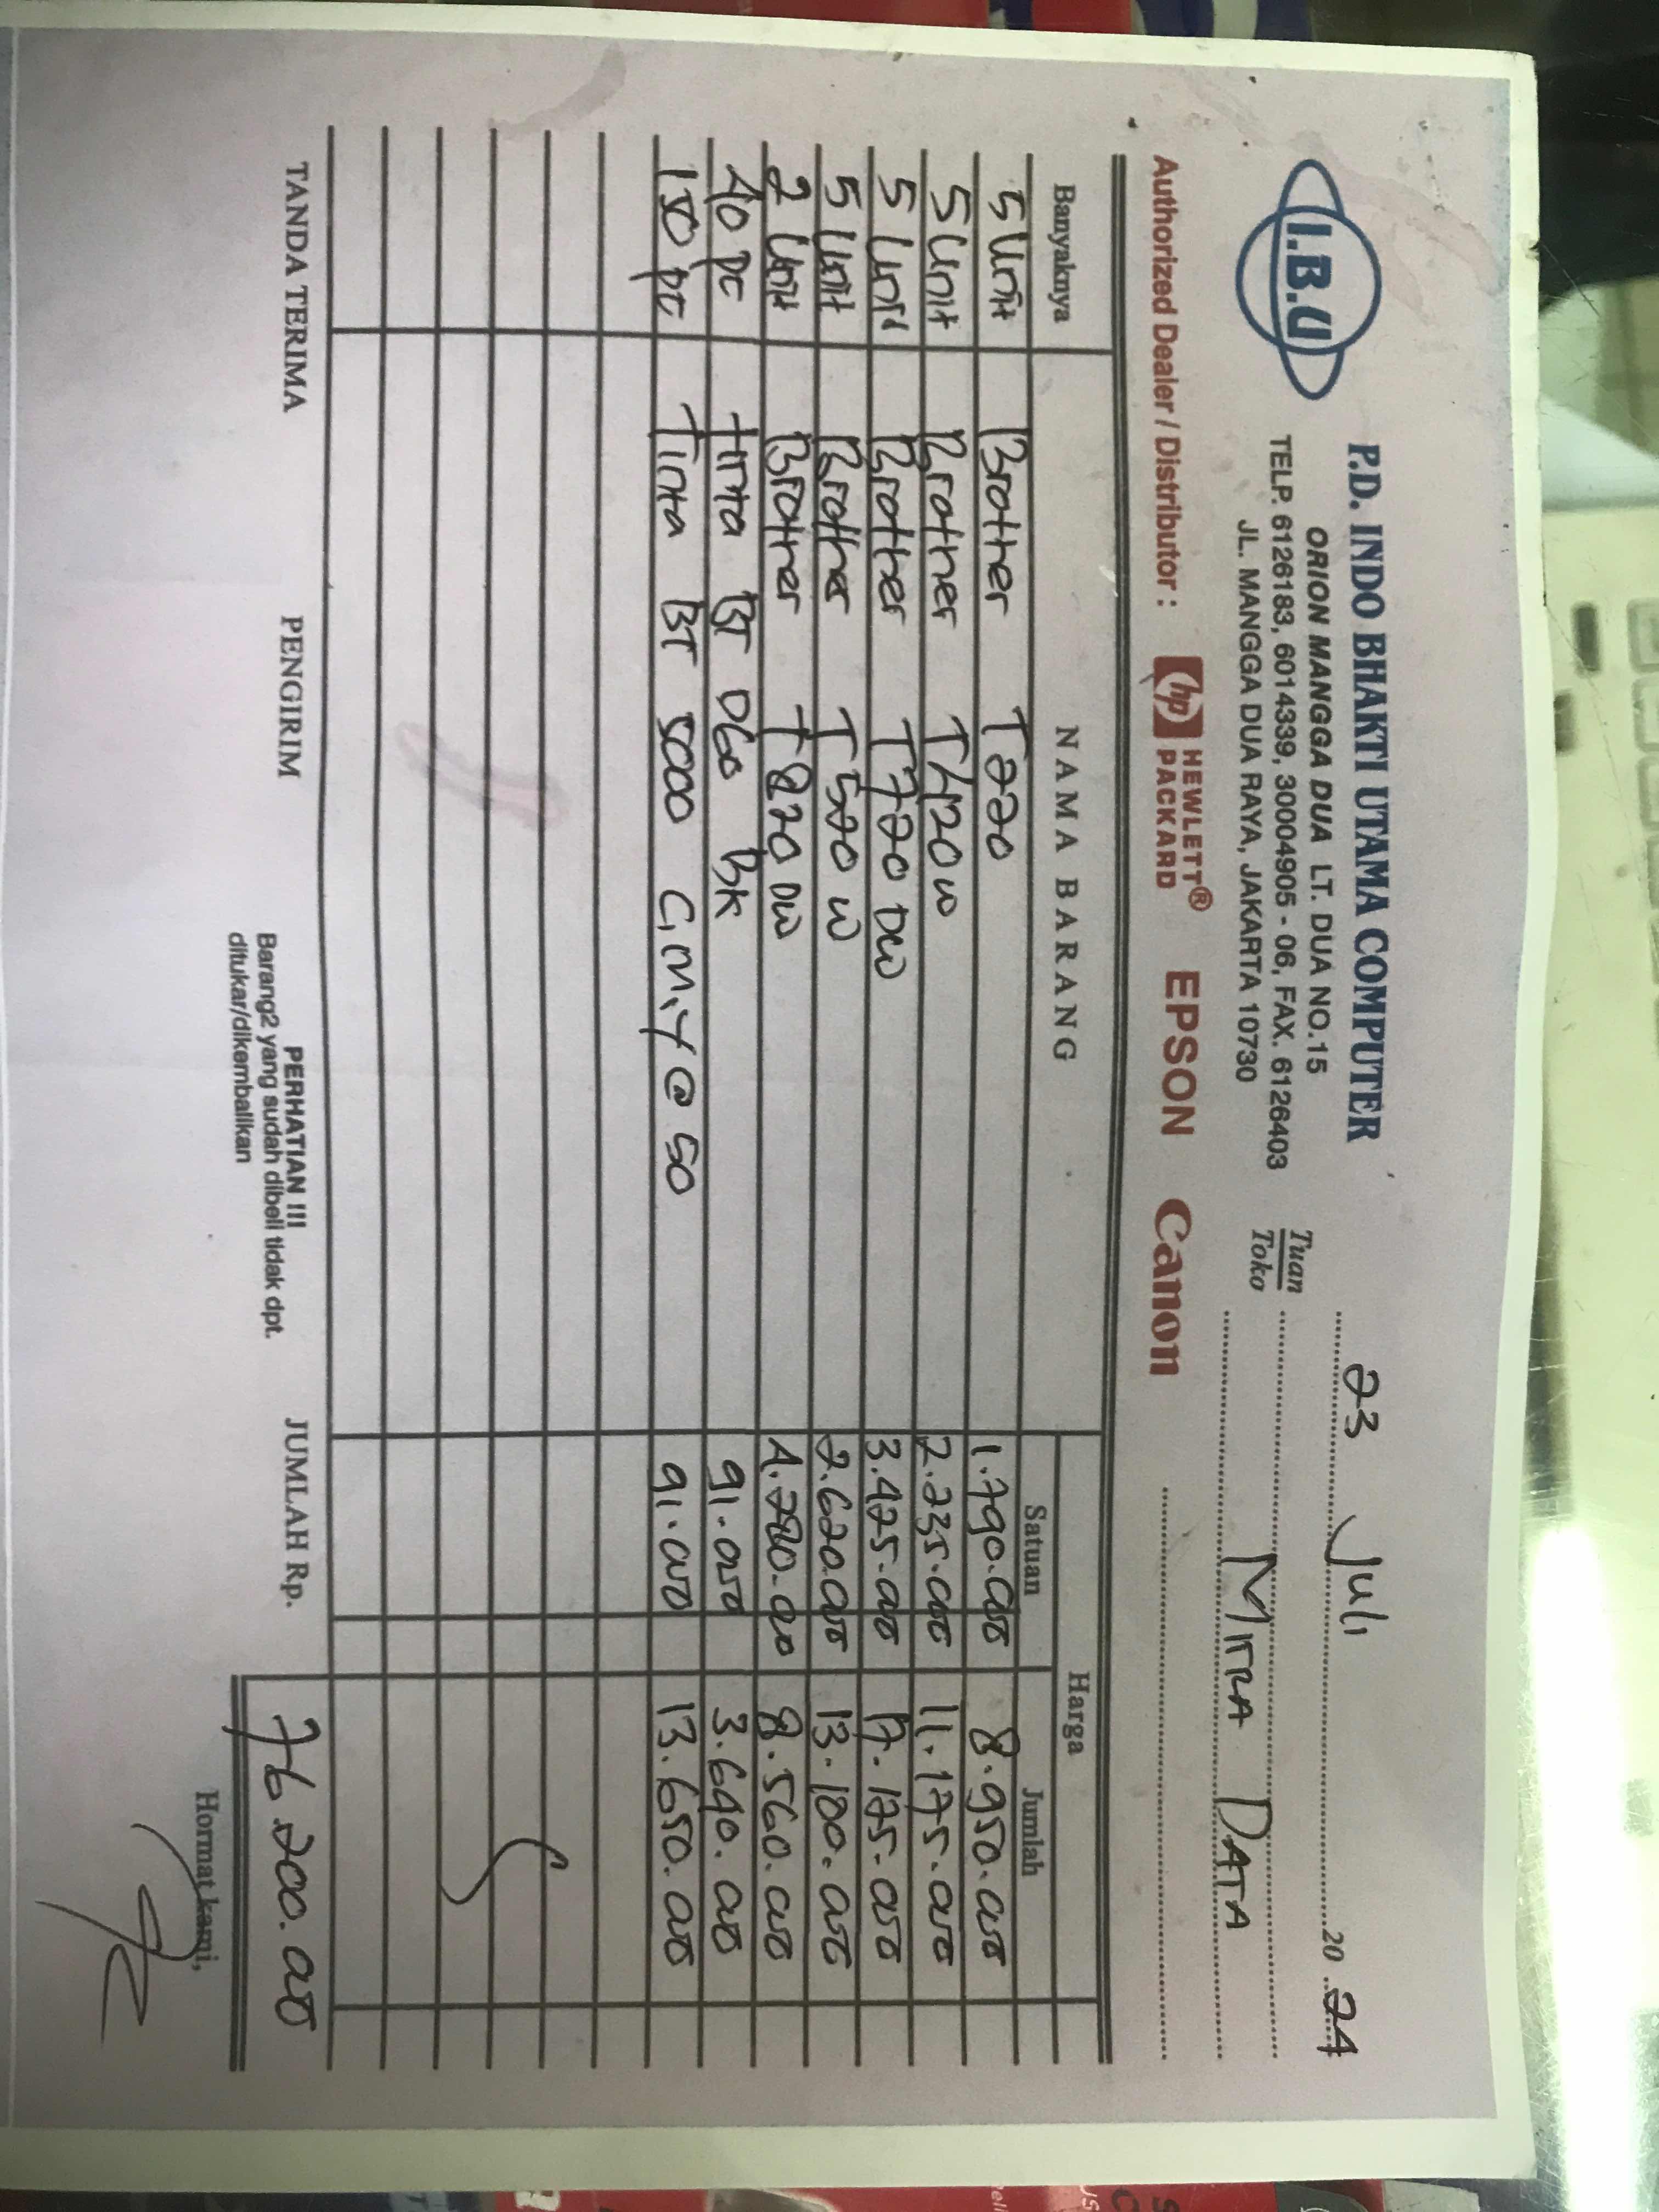 I.B.U
P.D. INDO BHAKTI UTAMA COMPUTER
ORION MANGGA DUA LT. DUA NO.15
TELP. 6126183, 6014339, 30004905 - 06, FAX. 6126403
JL. MANGGA DUA RAYA, JAKARTA 10730
23 Juli 20 24
Tuan
Toko
MITRA DATA
Authorized Dealer / Distributor : hp HEWLETT® PACKARD EPSON Canon
Banyaknya NAMA BARANG Harga
Satuan Jumlah
5 Unit Brother T220 1.790.000 8.950.000
5 Unit Brother T420 W 2.235.000 11.175.000
5 Unit Brother T720 DW 3.425.000 17.125.000
5 Unit Brother T520 W 2.620.000 13.100.000
2 Unit Brother T820 DW 4.280.000 8.560.000
40 pc tinta BT D60 BK 91.000 3.640.000
150 pc Tinta BT 5000 C,M,Y @ 50 91.000 13.650.000
TANDA TERIMA PENGIRIM
PERHATIAN !!!
Barang2 yang sudah dibeli tidak dpt.
ditukar/dikembalikan
JUMLAH Rp. 76.200.000
Hormat kami,